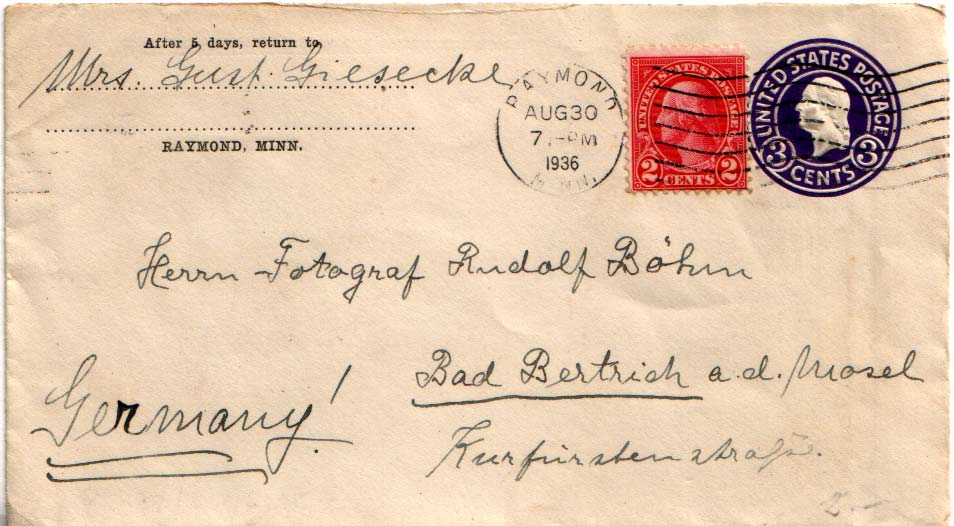 After 5 days, return to
Mrs. Gust. Giesecke
RAYMOND, MINN.
RAYMOND
AUG 30
7 - PM
1936
MINN.
UNITED STATES POSTAGE
2 CENTS 2
UNITED STATES POSTAGE
3 CENTS 3
Herrn Fotograf Rudolf Böhm
Bad Bertrich a.d. Mosel
Germany!
Kurfürstenstraße.
2.-